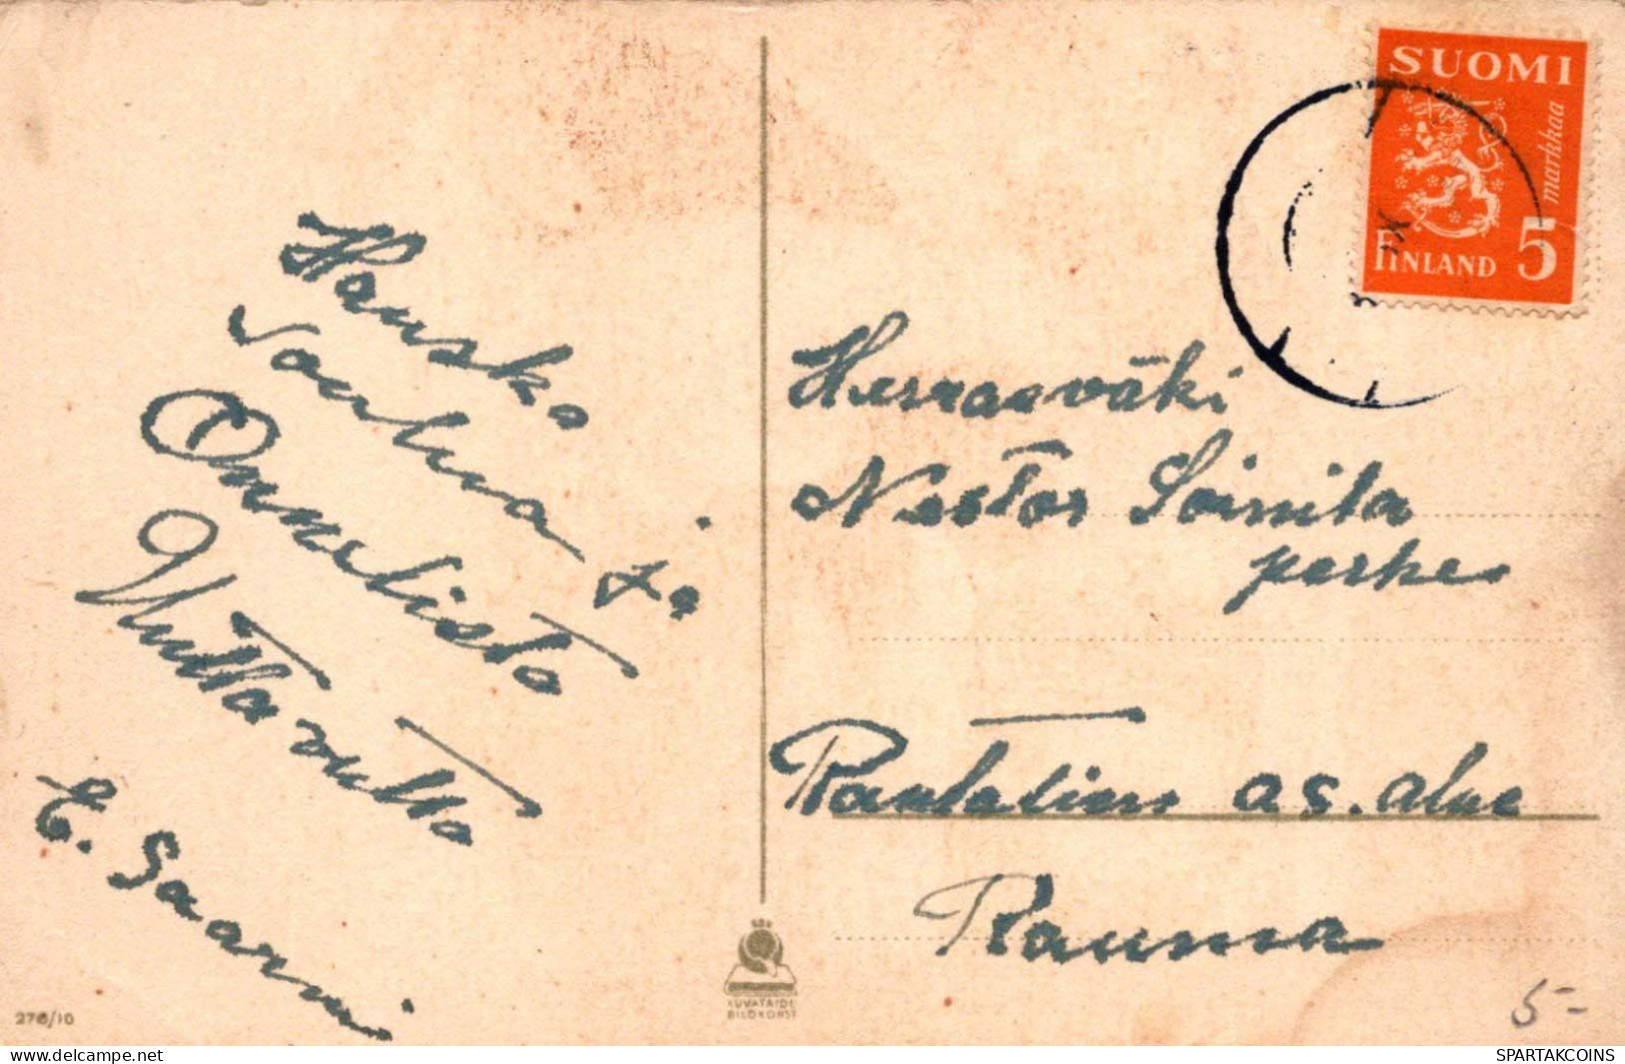 Hauska
Joulua ja
Onnellista
Uutta vutta
E. Saarni
SUOMI
markkaa
FINLAND 5
Herrasväki
Nestor Soinila
perhe
Rantatien as. alue
Rauma
KUVATAIDE
BILDKONST
276/10
5-
https://www.delcampe.net
SPARTAKCOINS